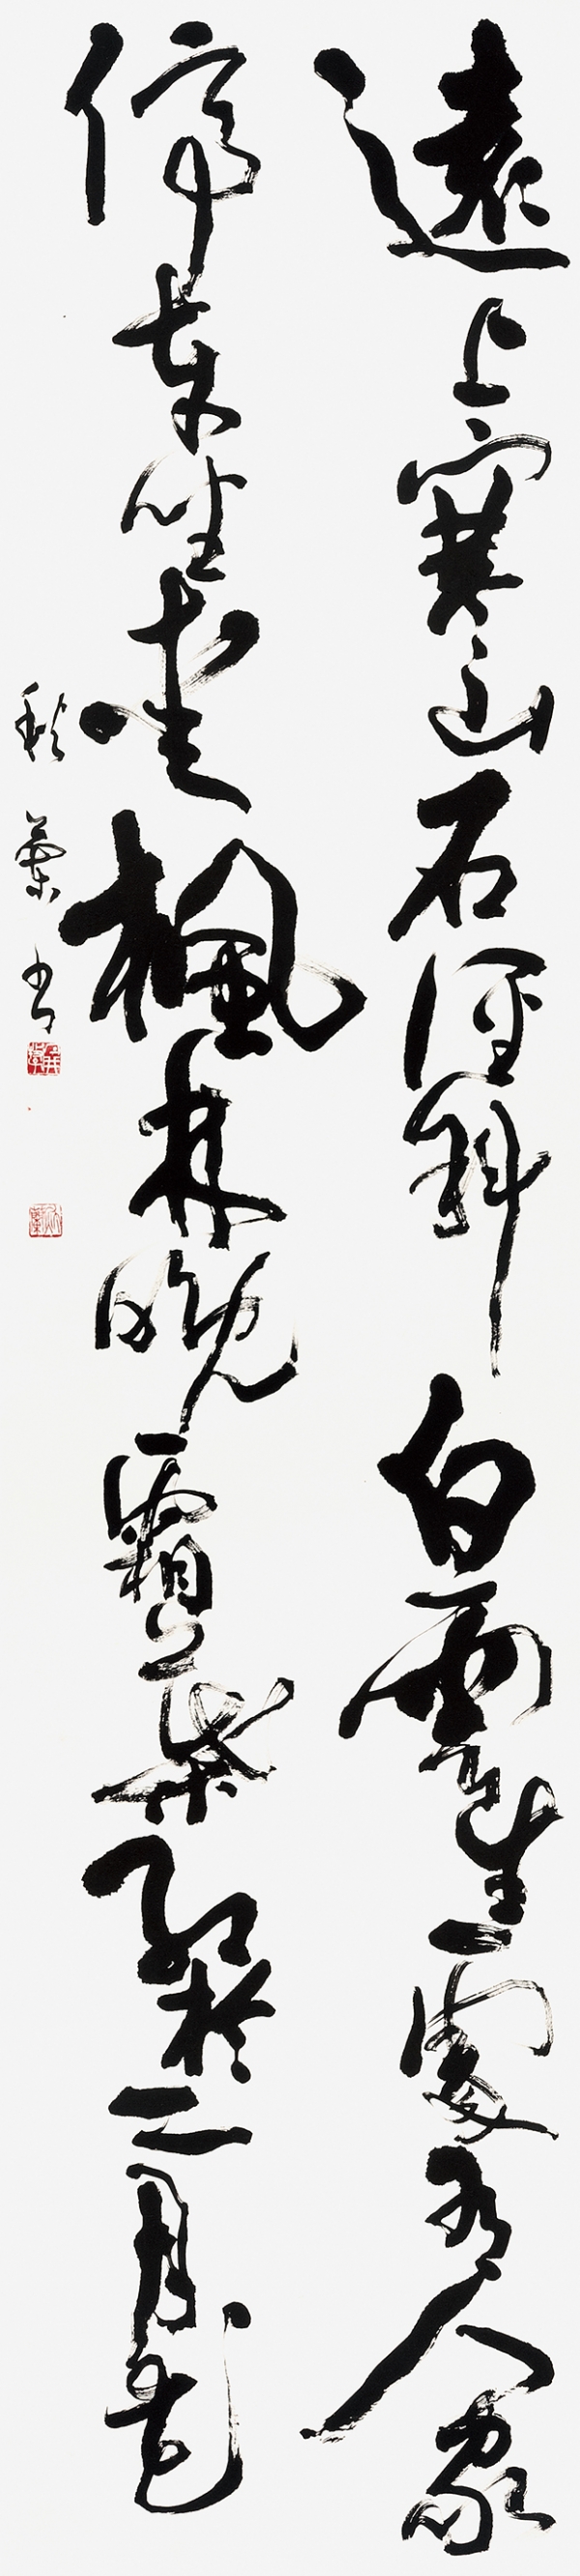 遠上寒山石徑斜白雲生處有人家
停車坐愛楓林晚霜葉紅於二月花
秋葉书